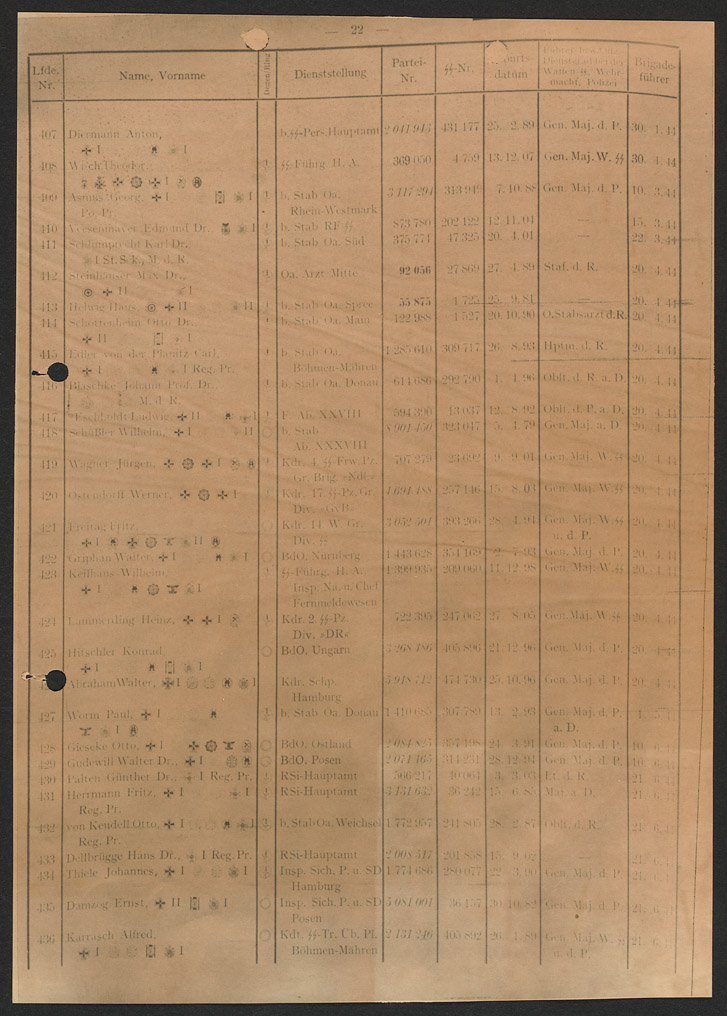 — 22 —
Lfde. Nr. Name, Vorname Degen/Ring Dienststellung Partei-Nr. ᛋᛋ-Nr. datum Brigade-führer
407 Diermann Anton, I I b. ᛋᛋ-Pers. Hauptamt 2 041 943 431 177 25. 2. 89 Gen. Maj. d. P. 30. 4. 44
408 Wisch Theodor, ᛋᛋ-Führg. H. A. 369 050 4 759 13. 12. 07 Gen. Maj. W. ᛋᛋ 30. 4. 44
I
409 Georg, I I b. Stab Oa. 3 117 294 313 942 7. 10. 88 Gen. Maj. d. P. 10. 3. 44
Po. Pr. Rhein-Westmark
410 Veesenmayer Edmund Dr. I b. Stab RF ᛋᛋ 873 780 202 122 12. 11. 04 — 15. 3. 44
411 Karl Dr., b. Stab Oa. Süd 375 774 47 325 20. 4. 01 — 22. 3. 44
I St. Sekr. M. d. R.
412 Steinhäuser Max Dr., Oa. Arzt Mitte 92 056 27 869 27. 4. 89 Staf. d. R. 20. 4. 44
II I
413 Helwig Hans, II II b. Stab Oa. Spree 55 875 4 725 25. 9. 81 — 20. 4. 44
414 Schottenheim Otto Dr., b. Stab Oa. Main 122 988 1 527 20. 10. 90 O. Stabsarzt d. R. 20. 4. 44
II I
415 Edler von der Planitz Carl, b. Stab Oa. 1 285 610 309 717 26. 8. 93 Hptm. d. R. 20. 4. 44
I I Reg. Pr. Böhmen-Mähren
416 Blaschke Johann Prof. Dr., b. Stab Oa. Donau 614 686 292 790 1. 4. 96 Oblt. d. R. a. D. 20. 4. 44
M. d. R.
417 Ludwig, II I F. Ab. XXVIII 594 390 13 037 12. 8. 92 Oblt. d. P. a. D. 20. 4. 44
418 Wilhelm, I II b. Stab 8 901 450 323 047 5. 4. 79 Gen. Maj. a. D. 20. 4. 44
Ab. XXXVIII
419 Wagner Jürgen, I Kdr. 4. ᛋᛋ-Frw. Pz. 707 279 23 692 9. 9. 01 Gen. Maj. W. ᛋᛋ 20. 4. 44
Gr. Brig. »Ndl.«
420 Ostendorff Werner, I Kdr. 17. ᛋᛋ-Pz. Gr. 4 691 488 257 146 15. 8. 03 Gen. Maj. W. ᛋᛋ 20. 4. 44
Div. »GvB«
421 Freitag Fritz, Kdr. 14. W. Gr. 3 052 501 393 266 28. 4. 94 Gen. Maj. W. ᛋᛋ 20. 4. 44
I II Div. ᛋᛋ u. d. P.
422 Griphan Walter, I I BdO. Nürnberg 1 443 628 354 169 7. 93 Gen. Maj. d. P. 20. 4. 44
423 Keilhaus Wilhelm, ᛋᛋ-Führg. H. A. 1 399 935 269 060 11. 12. 98 Gen. Maj. W. ᛋᛋ 20. 4. 44
I I Insp. Na. u. Chef
Fernmeldewesen
424 Lammerding Heinz, I Kdr. 2. ᛋᛋ-Pz. 722 395 247 062 27. 8. 05 Gen. Maj. W. ᛋᛋ 20. 4. 44
Div. »DR«
425 Hitschler Konrad, BdO. Ungarn 3 268 186 405 896 21. 12. 96 Gen. Maj. d. P. 20. 4. 44
I I
Abraham Walter, I I Kdr. Schp. 5 918 712 474 730 25. 10. 96 Gen. Maj. d. P. 20. 4. 44
Hamburg
427 Worm Paul, I b. Stab Oa. Donau 1 410 685 307 789 13. 2. 93 Gen. Maj. d. P. 1. 5. 44
I a. D.
428 Gieseke Otto, I BdO. Ostland 2 084 825 357 198 24. 3. 91 Gen. Maj. d. P. 10. 6. 44
429 Gudewill Walter Dr., I BdO. Posen 2 071 165 314 231 28. 12. 94 Gen. Maj. d. P. 10. 6. 44
430 Palten Günther Dr., I Reg. Pr. RSi-Hauptamt 566 217 40 064 3. 3. 03 Lt. d. R. 21. 6. 44
431 Herrmann Fritz, I I RSi-Hauptamt 3 131 632 36 242 15. 6. 85 Maj. a. D. 21. 6. 44
Reg. Pr.
432 von Keudell Otto, I I b. Stab Oa. Weichsel 1 772 957 241 805 28. 2. 87 Oblt. d. R. 21. 6. 44
Reg. Pr.
433 Dellbrügge Hans Dr., I Reg. Pr. RSi-Hauptamt 2 008 517 201 858 15. 9. 02 — 21. 6. 44
434 Thiele Johannes, I I Insp. Sich. P. u. SD 1 774 686 280 077 22. 3. 90 Gen. Maj. d. P. 21. 6. 44
Hamburg
435 Damzog Ernst, II I Insp. Sich. P. u. SD 5 081 001 36 157 30. 10. 82 Gen. Maj. d. P. 21. 6. 44
Posen
436 Karrasch Alfred, Kdt. ᛋᛋ-Tr. Üb. Pl. 2 131 246 405 892 26. 4. 89 Gen. Maj. W. ᛋᛋ 21. 6. 44
I I Böhmen-Mähren u. d. P.